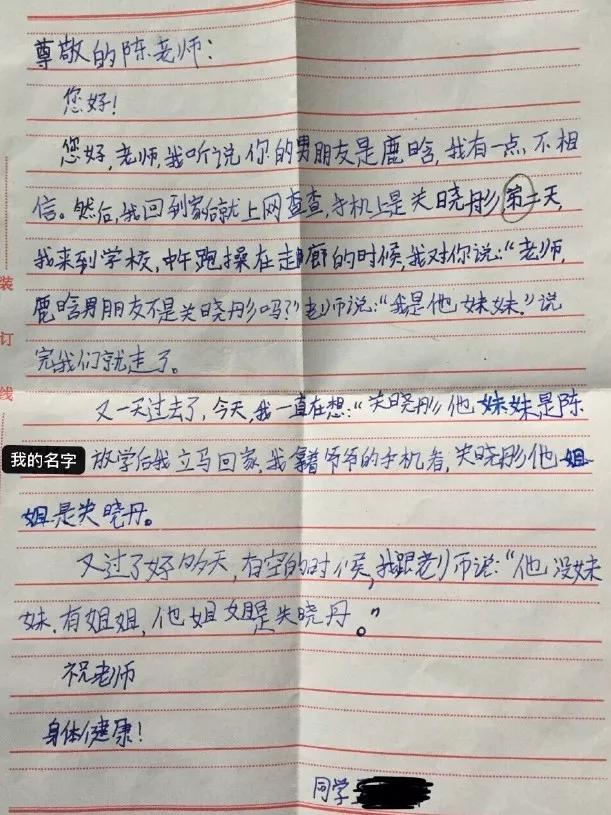 尊敬的陈老师：
您好！
您好，老师，我听说你的男朋友是鹿晗，我有一点不相
信。然后，我回到家后就上网查查，手机上是关晓彤第二天，
我来到学校，中午跑操在走廊的时候，我对你说：“老师，
鹿晗男朋友不是关晓彤吗？”老师说：“我是他妹妹。”说
完我们就走了。
又一天过去了，今天，我一直在想：“关晓彤他妹妹是陈
我的名字 放学后我立马回家，我拿着爷爷的手机看，关晓彤他姐
姐是关晓丹。
又过了好多天，有空的时候，我跟老师说：“他没妹
妹，有姐姐，他姐姐是关晓丹。”
祝老师
身体健康！
同学
装
订
线